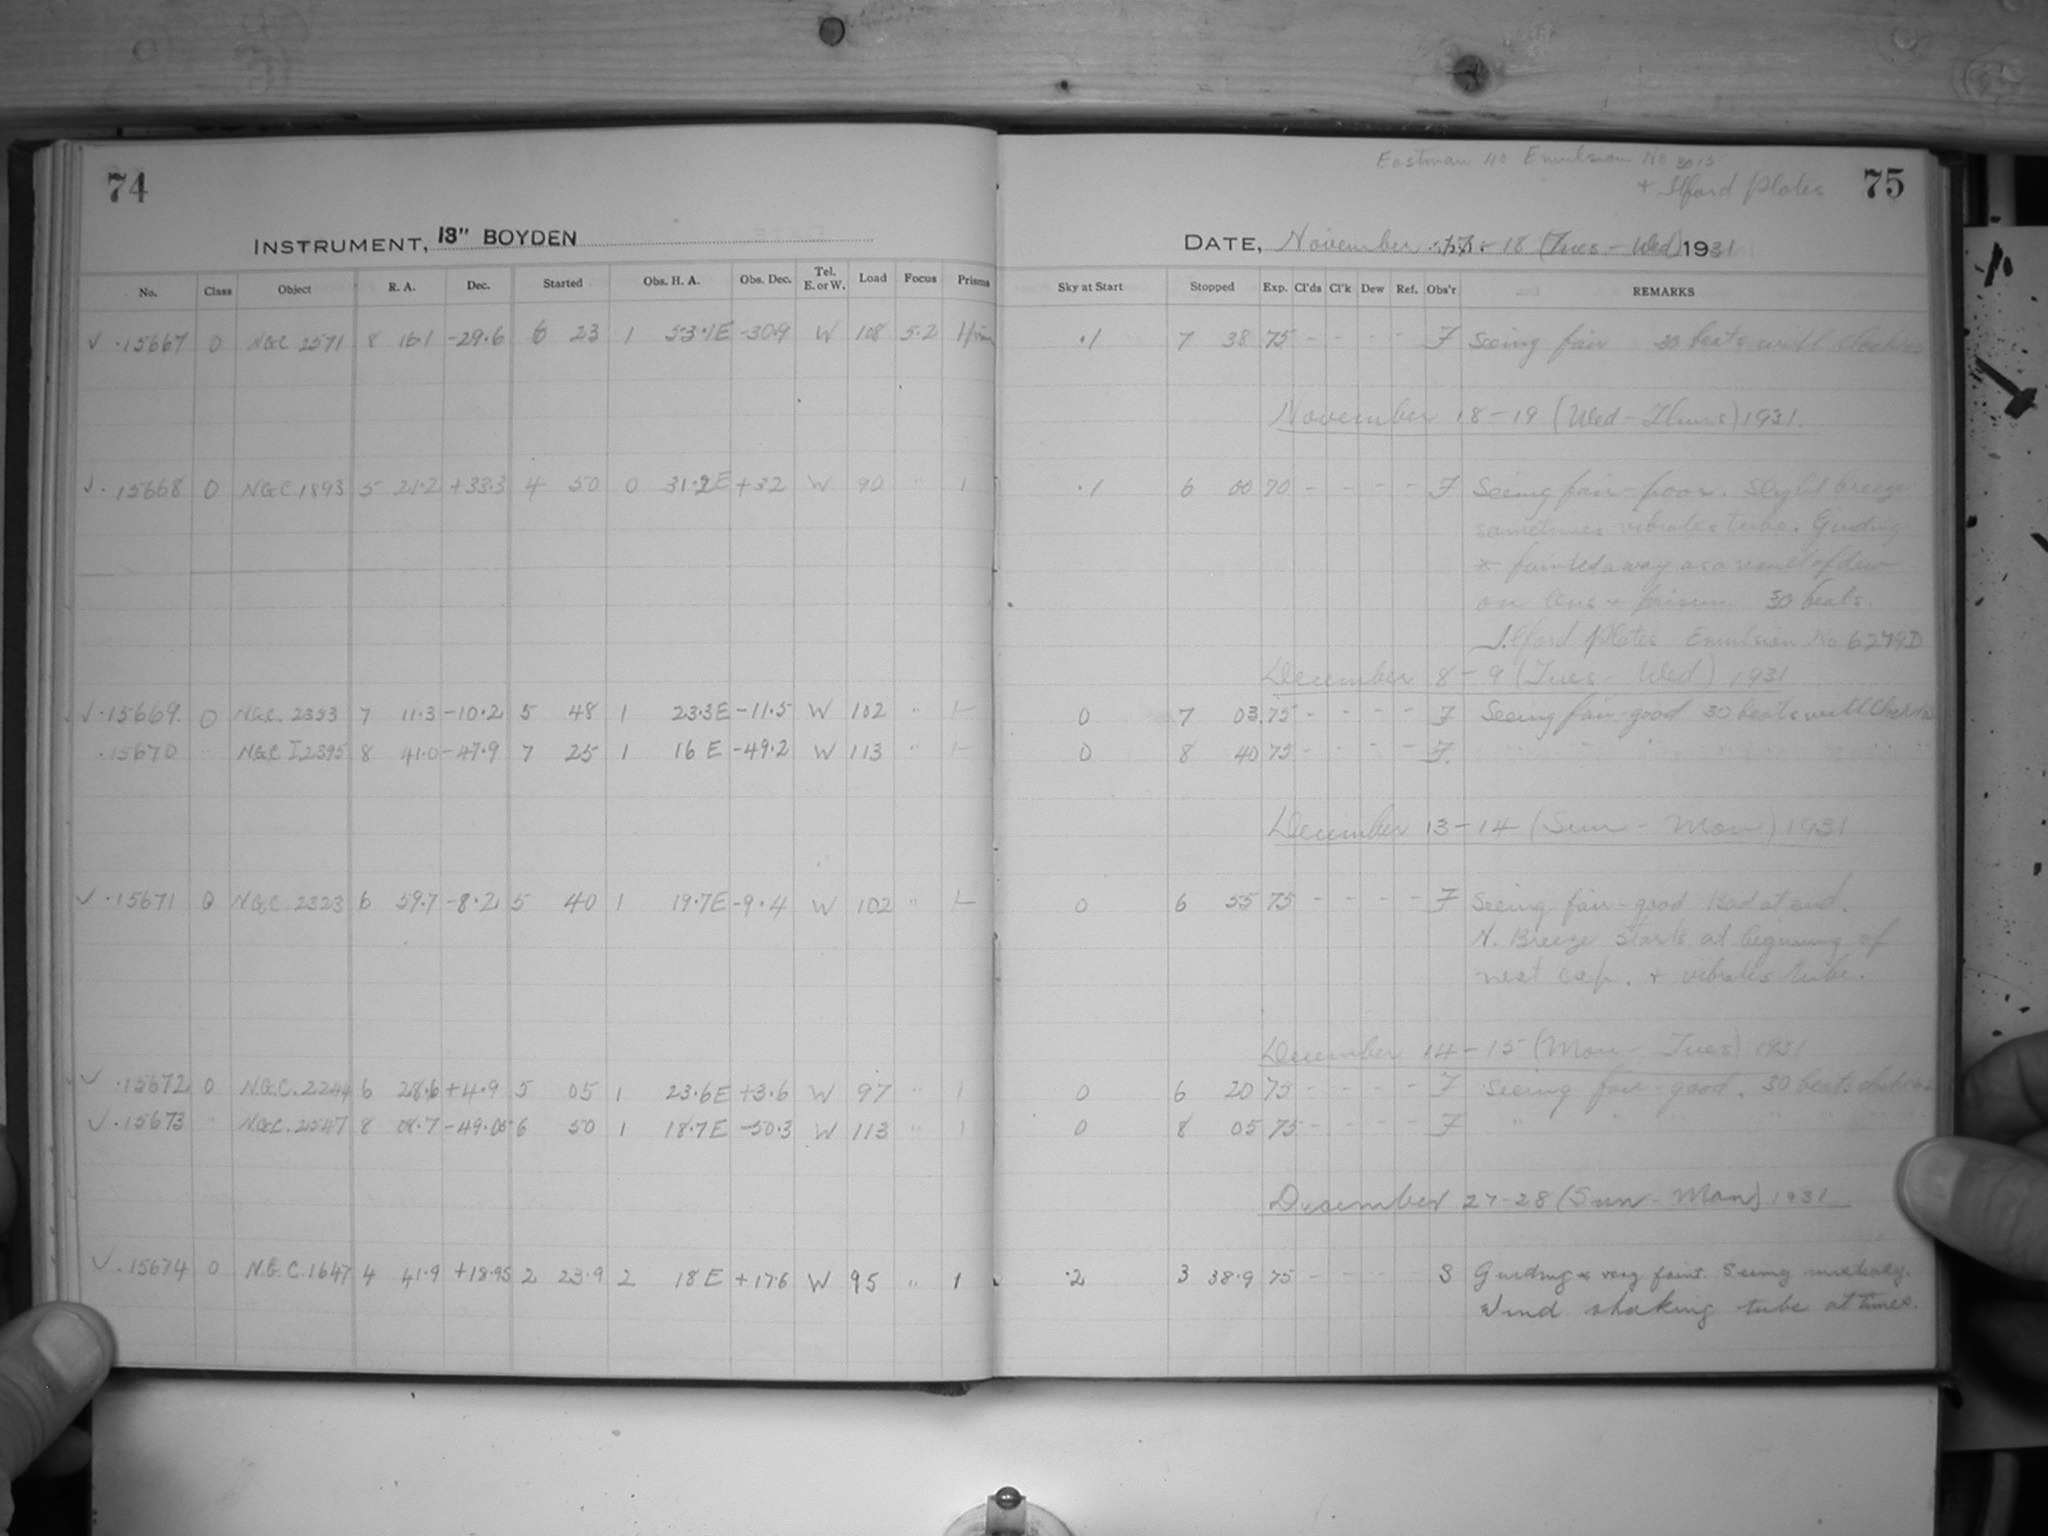 74
INSTRUMENT, 13" BOYDEN
No. Class Object R. A. Dec. Started Obs. H. A. Obs. Dec. Tel. E. or W. Load Focus Prisms
√ .15667 O NGC 2571 8 16.1 -29.6 6 23 1 53.1E -30.9 W 108 5.2
√ . 15668 O NGC 1893 5 21.2 +33.3 4 50 0 31.2E +32 W 90 " 1
√ .15669 O NGC. 2353 7 11.3 -10.2 5 48 1 23.3E -11.5 W 102 " 1-
.15670 " NGC I.2395 8 41.0 -47.9 7 25 1 16 E -49.2 W 113 " 1-
√ .15671 O NGC. 2323 6 59.7 -8.2 5 40 1 19.7E -9.4 W 102 " 1-
√ .15672 O N.G.C. 2244 6 28.6 +4.9 5 05 1 23.6E +3.6 W 97 " 1
√ .15673 " NGC. 2547 8 08.7 -49.05 6 50 1 18.7E -50.3 W 113 " 1
√ .15674 O N.G.C. 1647 4 41.9 +18.95 2 23.9 2 18 E +17.6 W 95 " 1
Eastman 40 Emulsion No 3015
+ Ilford Plates
75
DATE, November 17 - 18 (Tues - Wed) 1931
Sky at Start Stopped Exp. Cl'ds Cl'k Dew Ref. Obs'r REMARKS
.1 7 38 75 - - - - F Seeing fair 30 beats with
November 18-19 (Wed-Thurs) 1931.
.1 6 00 70 - - - - F Seeing fair-poor. Slight breeze
sometimes vibrates tube. Guiding
* fainted away as a result of dew
on lens + prism 30 beats.
Ilford Plates Emulsion No 6279D
December 8-9 (Tues - Wed) 1931
0 7 03 75 - - - - F Seeing fair-good 30 beats with
0 8 40 75 - - - - F
December 13-14 (Sun - Mon) 1931
0 6 55 75 - - - - F Seeing fair-good, Bad at end.
N. Breeze starts at beginning of
next exp. + vibrates tube.
December 14-15 (Mon - Tues) 1931
0 6 20 75 - - - - F Seeing fair-good. 30 beats
0 8 05 75 - - - - F "
December 27-28 (Sun - Mon) 1931
.2 3 38.9 75 - - - S Guiding * very faint. Seeing unsteady.
Wind shaking tube at times.